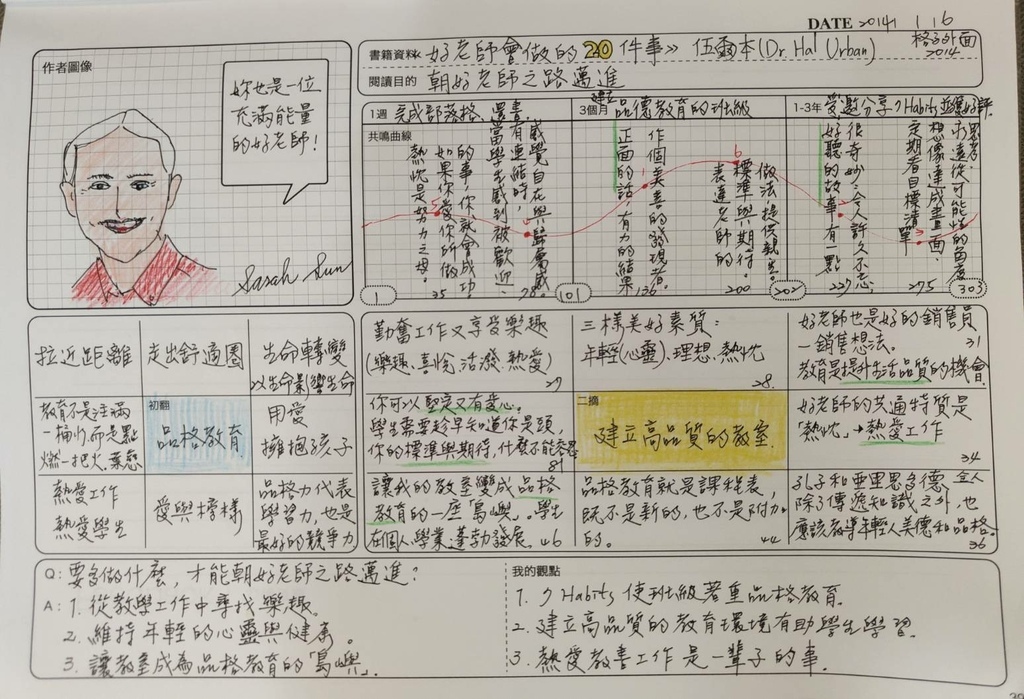 DATE 2014 1 16
作者圖像
妳也是一位
充滿能量
的好老師！
Sarah Sun
書籍資料 《好老師會做的20件事》 伍爾本(Dr. Hal Urban) 格子外面 2014
閱讀目的 朝好老師之路邁進
1週 完成部落格、還書
3個月 建立品德教育的班級
1-3年 受邀分享7 Habits並獲好評
共鳴曲線
熱忱是努力之母。
如果你愛你所做
的事，你就會成功。
35
當學生感到被歡迎、
有連結時，
感覺自在與歸屬感。
78
正面的話，有力的結果
作個美善的發現者。
136
表達老師的
標準與期待。
做法，提供親生。
200
好聽的故事有一點
很奇妙：令人許久不忘。
227
定期看目標清單
想像達成畫面，
永遠從可能性的角度
思考。
275
1
101
202
303
拉近距離
走出舒適圈
生命轉變
以生命影響生命
教育不是注滿
一桶水而是點
燃一把火。葉慈
初翻
品格教育
用愛
擁抱孩子
熱愛工作
熱愛學生
愛與榜樣
品格力代表
學習力，也是
最好的競爭力
勤奮工作又享受樂趣
(樂趣、喜悅、活潑、熱愛)
27
三樣美好素質：
年輕(心靈)、理想、熱忱
28
好老師也是好的銷售員
—銷售想法。 31
教育是提升生活品質的機會
你可以堅定又有愛心。
學生需要趁早知道你是頭，
你的標準與期待，什麼不能容忍
81
二摘
建立高品質的教室
好老師的共通特質是
「熱忱」→熱愛工作
34
讓我的教室變成品格
教育的一座「島嶼」。學生
在個人、學業，蓬勃發展。46
品格教育就是課程表，
既不是新的，也不是附加
的。 44
孔子和亞里思多德
除了傳遞知識之外，也
應該教導年輕人美德和品格。
36
Q：要多做什麼，才能朝好老師之路邁進？
A：1. 從教學工作中尋找樂趣。
2. 維持年輕的心靈與健康。
3. 讓教室成為品格教育的「島嶼」。
我的觀點
1. 7 Habits 使班級著重品格教育。
2. 建立高品質的教育環境有助學生學習。
3. 熱愛教書工作是一輩子的事。